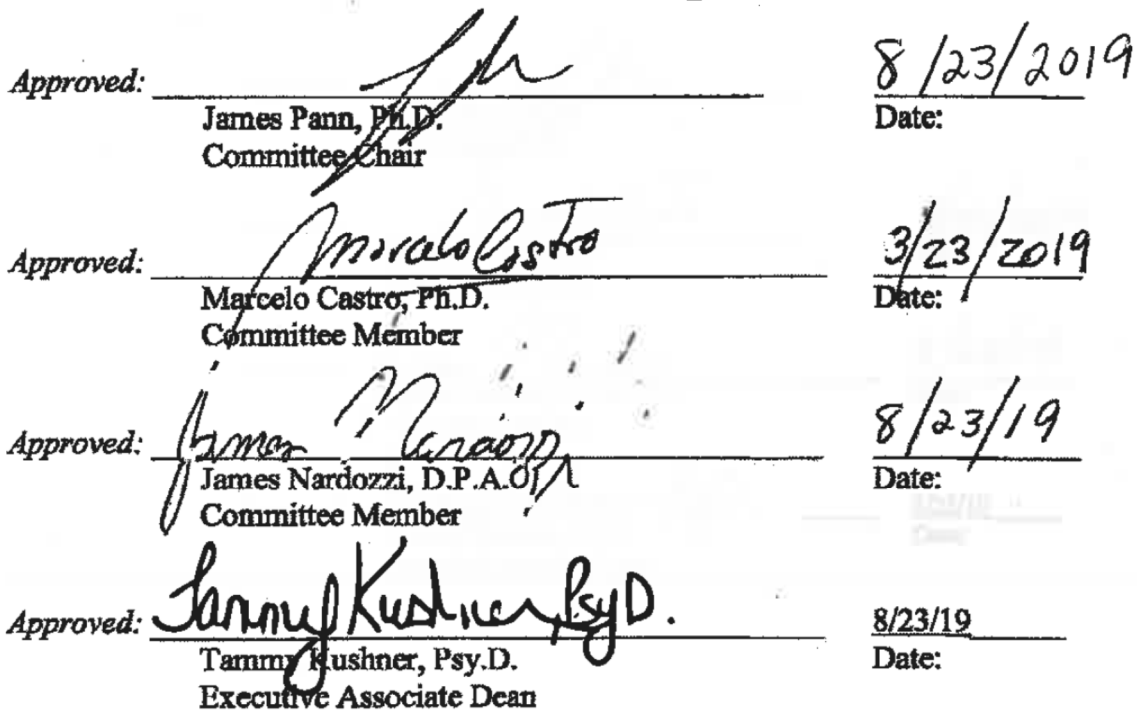 Approved:
8/23/2019
James Pann, Ph.D.
Date:
Committee Chair
Marcelo Castro
Approved:
3/23/2019
Marcelo Castro, Ph.D.
Date:
Committee Member
James Nardozzi
Approved:
8/23/19
James Nardozzi, D.P.A.
Date:
Committee Member
Tammy Kushner, PsyD.
Approved:
8/23/19
Tammy Kushner, Psy.D.
Date:
Executive Associate Dean